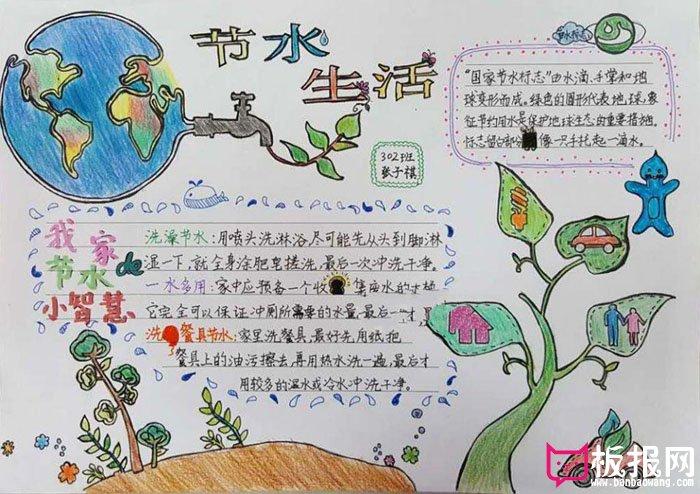 节水
生活
节水标志
"国家节水标志"由水滴、手掌和地
球变形而成。绿色的圆形代表地球,象
征节约用水是保护地球生态的重要措施。
标志留白部分像一只手托起一滴水。
302班
张子祺
我家
节水de
小智慧
洗澡节水:用喷头洗淋浴,尽可能先从头到脚淋
湿一下,就全身涂肥皂搓洗,最后一次冲洗干净。
一水多用:家中应预备一个收集废水的大桶
它完全可以保证冲厕所需要的水量。最后一
洗餐具节水:家里洗餐具,最好先用纸把
餐具上的油污擦去,再用热水洗一遍,最后才
用较多的温水或冷水冲洗干净。
板报网
www.banbaowang.com